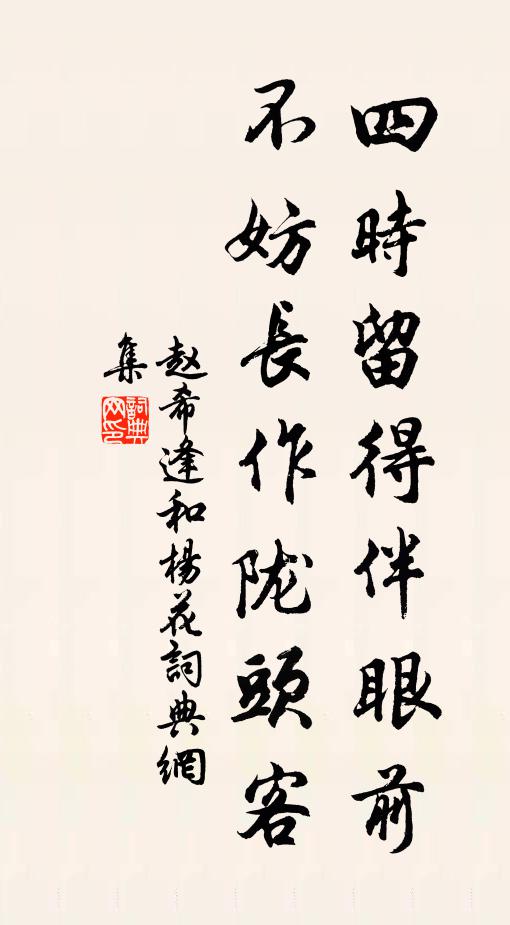 四時留得伴眼前
不妨長作陇頭客
赵希逢和楊花詞典網
集
詞典网印